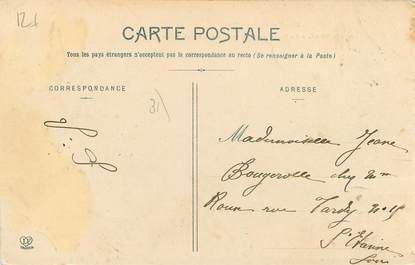 CARTE POSTALE
Tous les pays étrangers n'acceptent pas la correspondance au recto (Se renseigner à la Poste)
CORRESPONDANCE
ADRESSE
31
Mademoiselle Jeane
Bougerolle chez Mm
Roux rue Tardy No 15
St Etienne
Loire